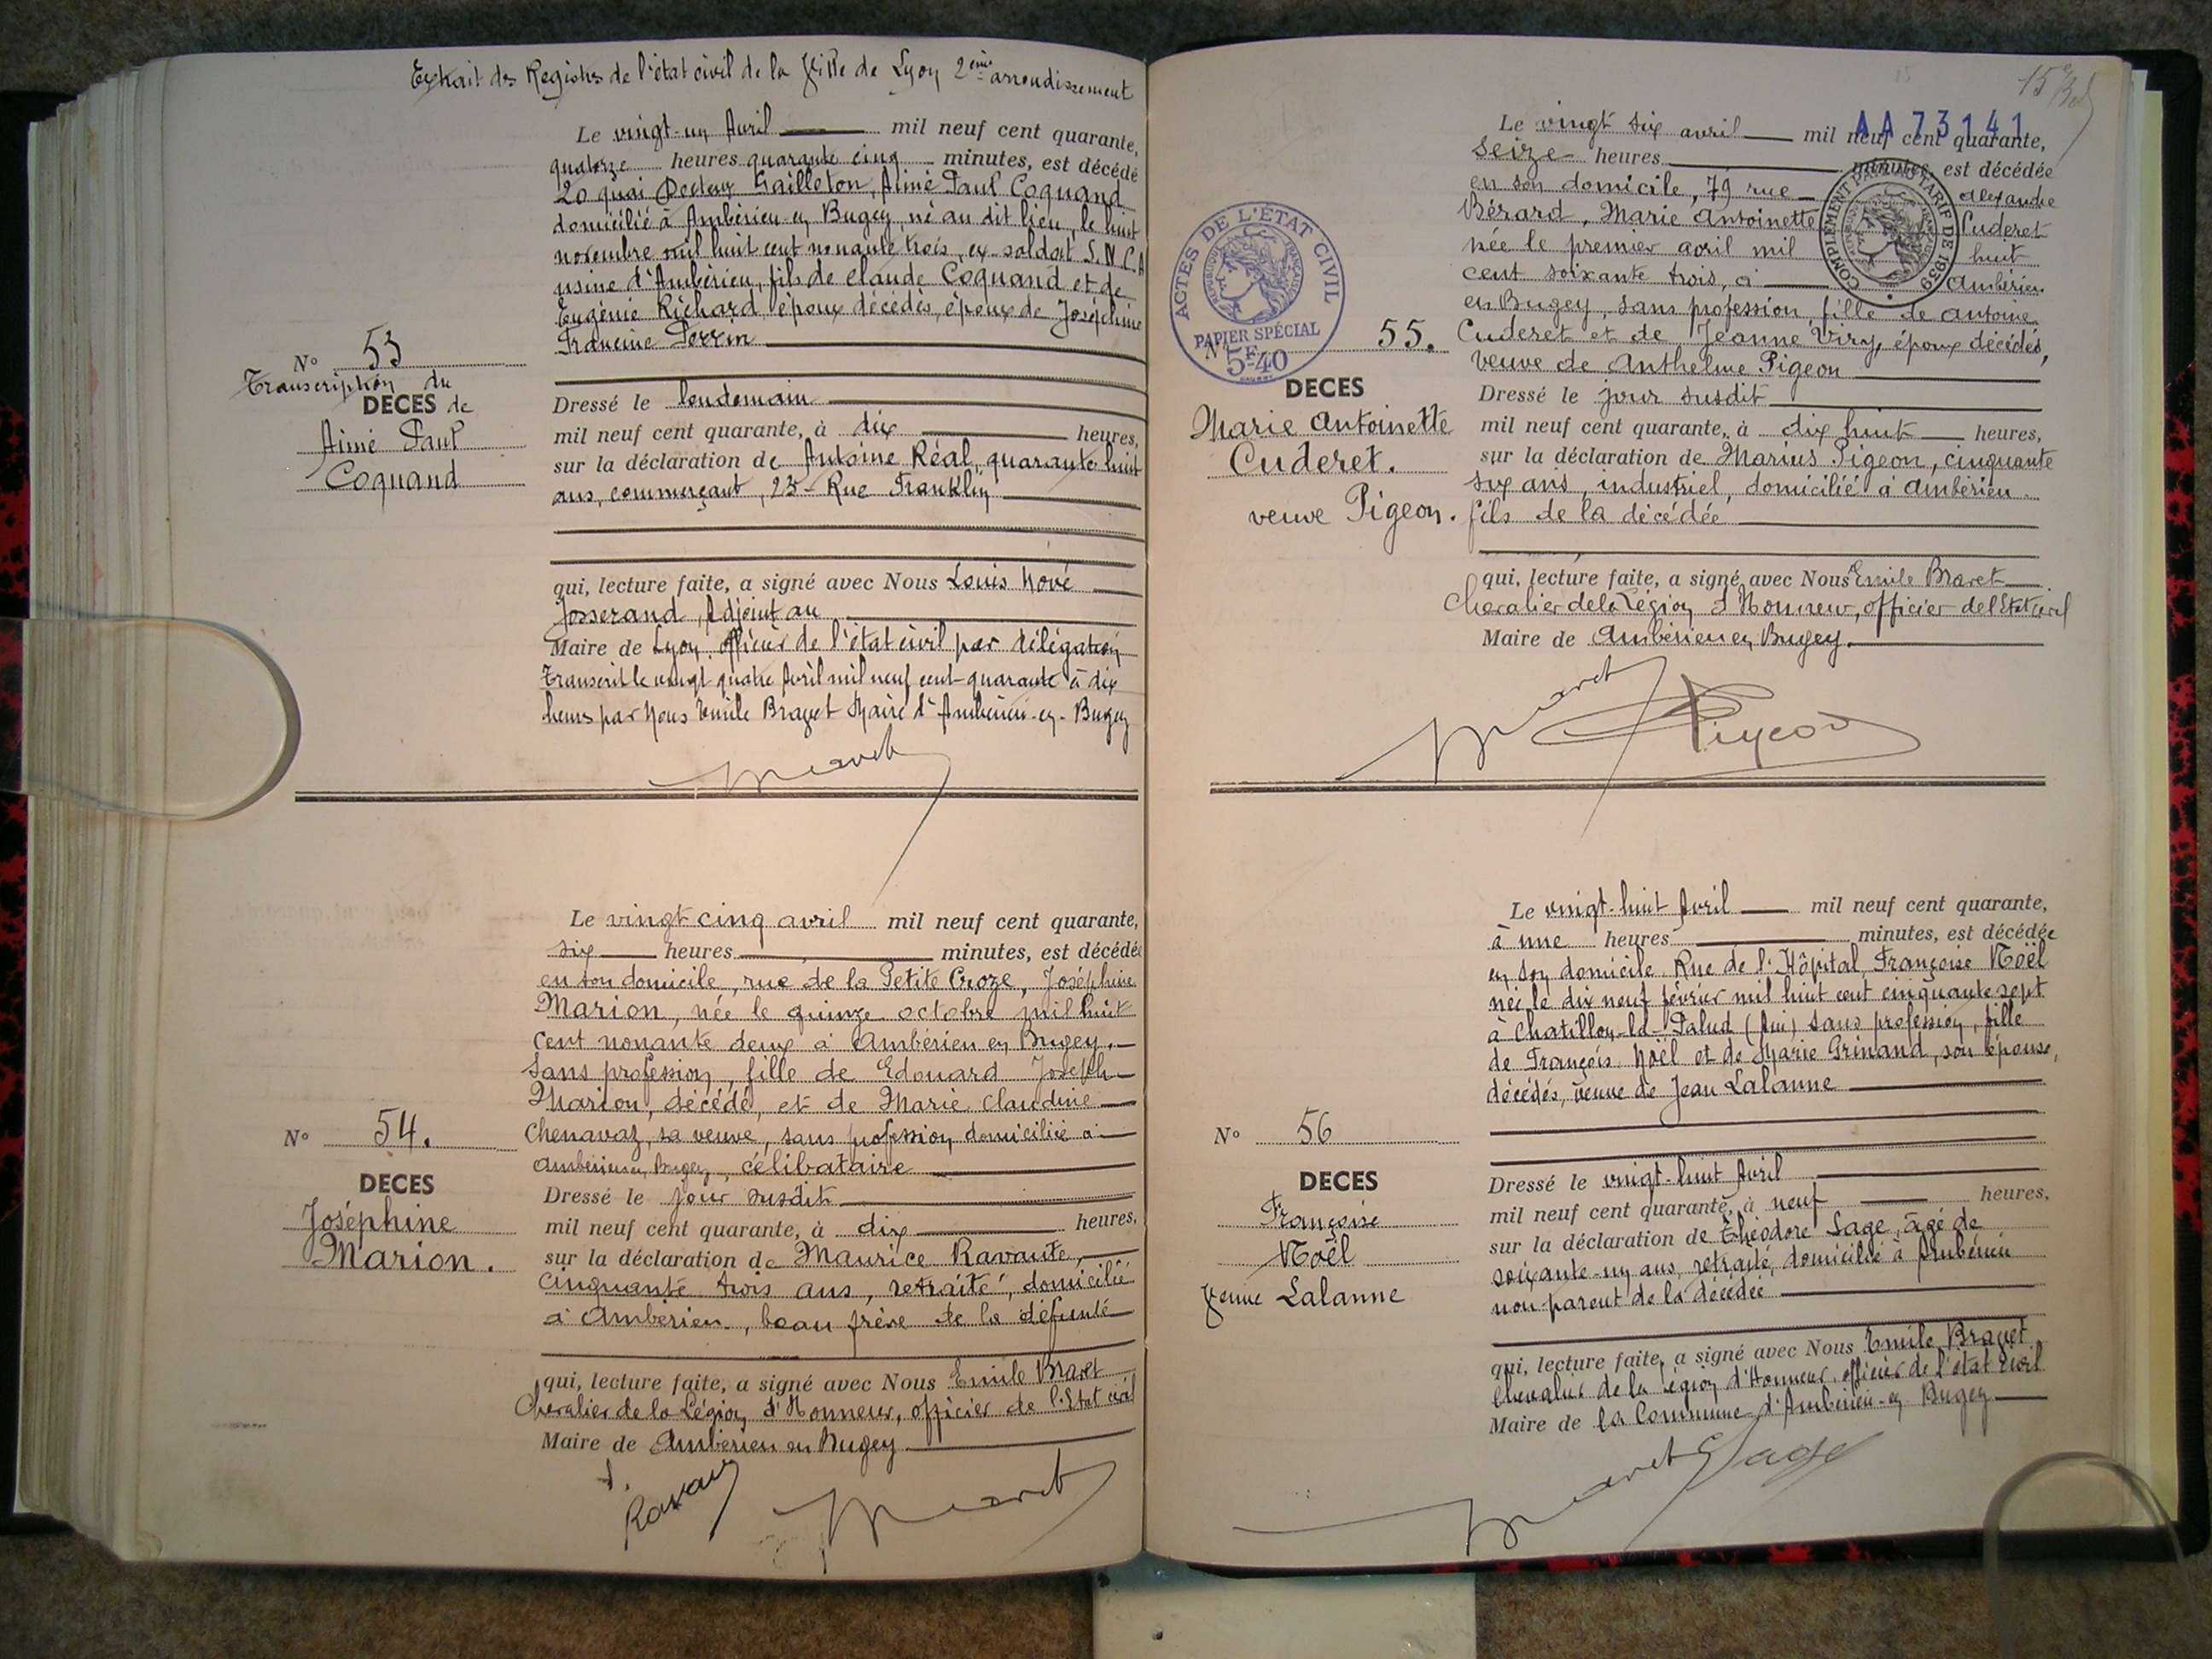 Extrait des Registres de l'état civil de la Ville de Lyon 2ème arrondissement
Le vingt-un Avril mil neuf cent quarante,
quatorze heures quarante cinq minutes, est décédé
20 quai Docteur Gailleton, Aimé Paul Coquand
domicilié à Ambérieu-en Bugey, né au dit lieu, le huit
novembre mil huit cent nonante trois, ex-soldat S.N.C.A
usine d'Ambérieu, fils de Claude Coquand et de
Eugénie Richard, époux décédés, époux de Joséphine
Francine Perrin
N° 53
Transcription du
DECES de
Aimé Paul
Coquand
Dressé le lendemain
mil neuf cent quarante, à dix heures,
sur la déclaration de Antoine Réal, quarante huit
ans, commerçant, 23 - Rue Franklin
qui, lecture faite, a signé avec Nous Louis Nové
Josserand, Adjoint au
Maire de Lyon, officier de l'état civil par délégation
Transcrit le vingt quatre Avril mil neuf cent quarante à dix
heures par Nous Emile Bravet Maire d'Ambérieu-en-Bugey
Bravet
Le vingt cinq avril mil neuf cent quarante,
six heures minutes, est décédée
en son domicile, rue de la Petite Croze, Joséphine
Marion, née le quinze octobre mil huit
cent nonante deux à Ambérieu en Bugey,
sans profession, fille de Edouard Joseph
Marion, décédé, et de Marie Claudine
Chenavaz, sa veuve, sans profession, domiciliée à
Ambérieu en Bugey, célibataire
N° 54.
DECES
Joséphine
Marion.
Dressé le jour susdit
mil neuf cent quarante, à dix heures,
sur la déclaration de Maurice Ravaute,
cinquante trois ans, retraité, domicilié
à Ambérieu, beau frère de la défunte
qui, lecture faite, a signé avec Nous Emile Bravet
Chevalier de la Légion d'Honneur, officier de l'Etat civil
Maire de Ambérieu en Bugey
Bravet
15
AA 73141
Le vingt six avril mil neuf cent quarante,
seize heures minutes, est décédée
en son domicile, 79 rue Alexandre
Bérard, Marie Antoinette Cuderet
née le premier avril mil huit
cent soixante trois, à Ambérieu
en Bugey, sans profession, fille de Antoine
Cuderet et de Jeanne Viry, époux décédés,
veuve de Anthelme Pigeon
COMPLÉMENT TARIF DE 1939
ACTES DE L'ÉTAT CIVIL
RÉPUBLIQUE FRANÇAISE
PAPIER SPÉCIAL
5F40
N° 55.
DECES
Marie Antoinette
Cuderet.
veuve Pigeon.
Dressé le jour susdit
mil neuf cent quarante, à dix huit heures,
sur la déclaration de Marius Pigeon, cinquante
six ans, industriel, domicilié à Ambérieu
fils de la décédée
qui, lecture faite, a signé avec Nous Emile Bravet
Chevalier de la Légion d'Honneur, officier de l'Etat civil
Maire de Ambérieu en Bugey.
Bravet Pigeon
Le vingt-huit Avril mil neuf cent quarante,
à une heures minutes, est décédée
en son domicile Rue de l'Hôpital, Françoise Noël
née le dix neuf février mil huit cent cinquante sept
à Chatillon-la-Palud (Ain) sans profession, fille
de François Noël et de Marie Grinand, son épouse,
décédés, veuve de Jean Lalanne
N° 56
DECES
Françoise
Noël
Veuve Lalanne
Dressé le vingt-huit Avril
mil neuf cent quarante, à neuf heures,
sur la déclaration de Théodore Sage, âgé de
soixante-un ans, retraité, domicilié à Ambérieu
non parent de la décédée
qui, lecture faite, a signé avec Nous Emile Bravet
Chevalier de la Légion d'Honneur, officier de l'état civil
Maire de la Commune d'Ambérieu-en Bugey
Bravet Sage